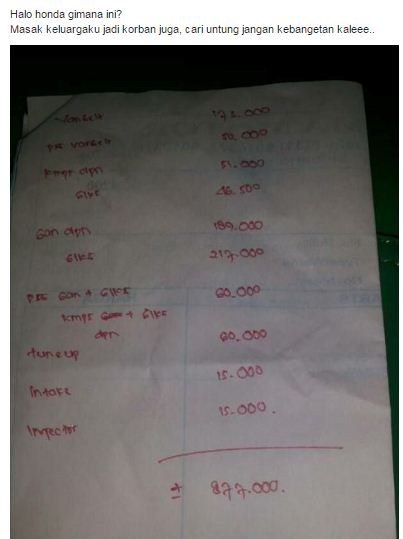 Halo honda gimana ini?
Masak keluargaku jadi korban juga, cari untung jangan kebangetan kaleee..
Vanbelt 173.000
psg vanbelt 50.000
kmps dpn 51.000
blkg 46.500
Ban dpn 189.000
blkg 217.000
psg Ban + blkg 60.000
kmps + blkg
dpn 60.000
tune up
Intake 15.000
Injector 15.000.
± 877.000.